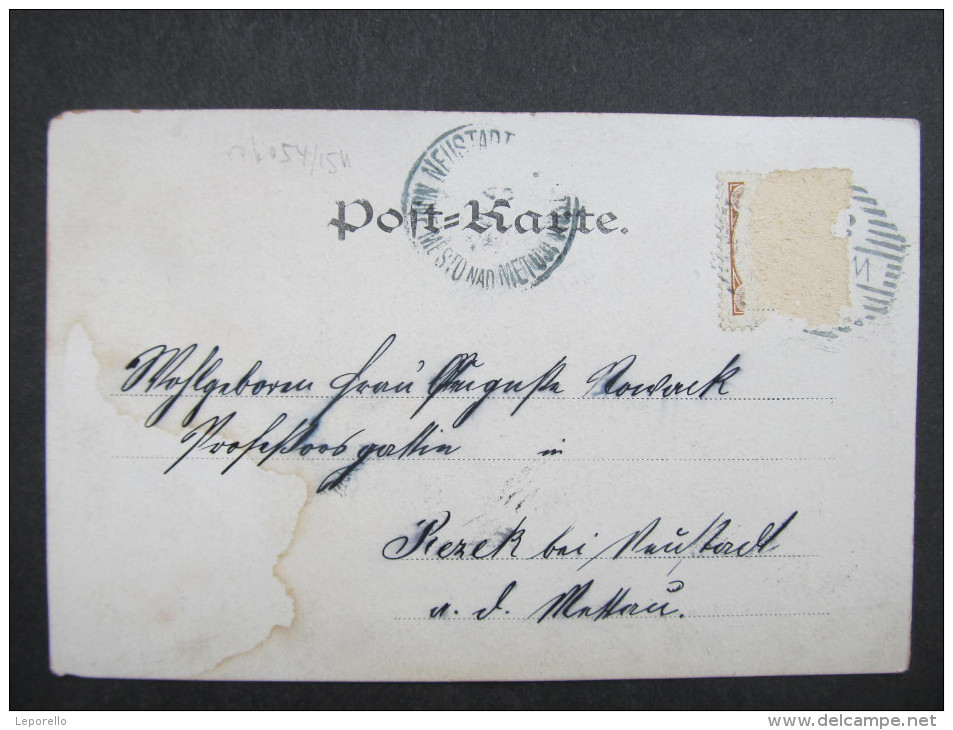 Post-Karte.
NEUSTADT
MĚSTO NAD METUJÍ
Wohlgeboren Frau Auguste Nowack
Professorsgattin in
Rezek bei Neustadt
a. d. Mettau.
Leporello
www.delcampe.net